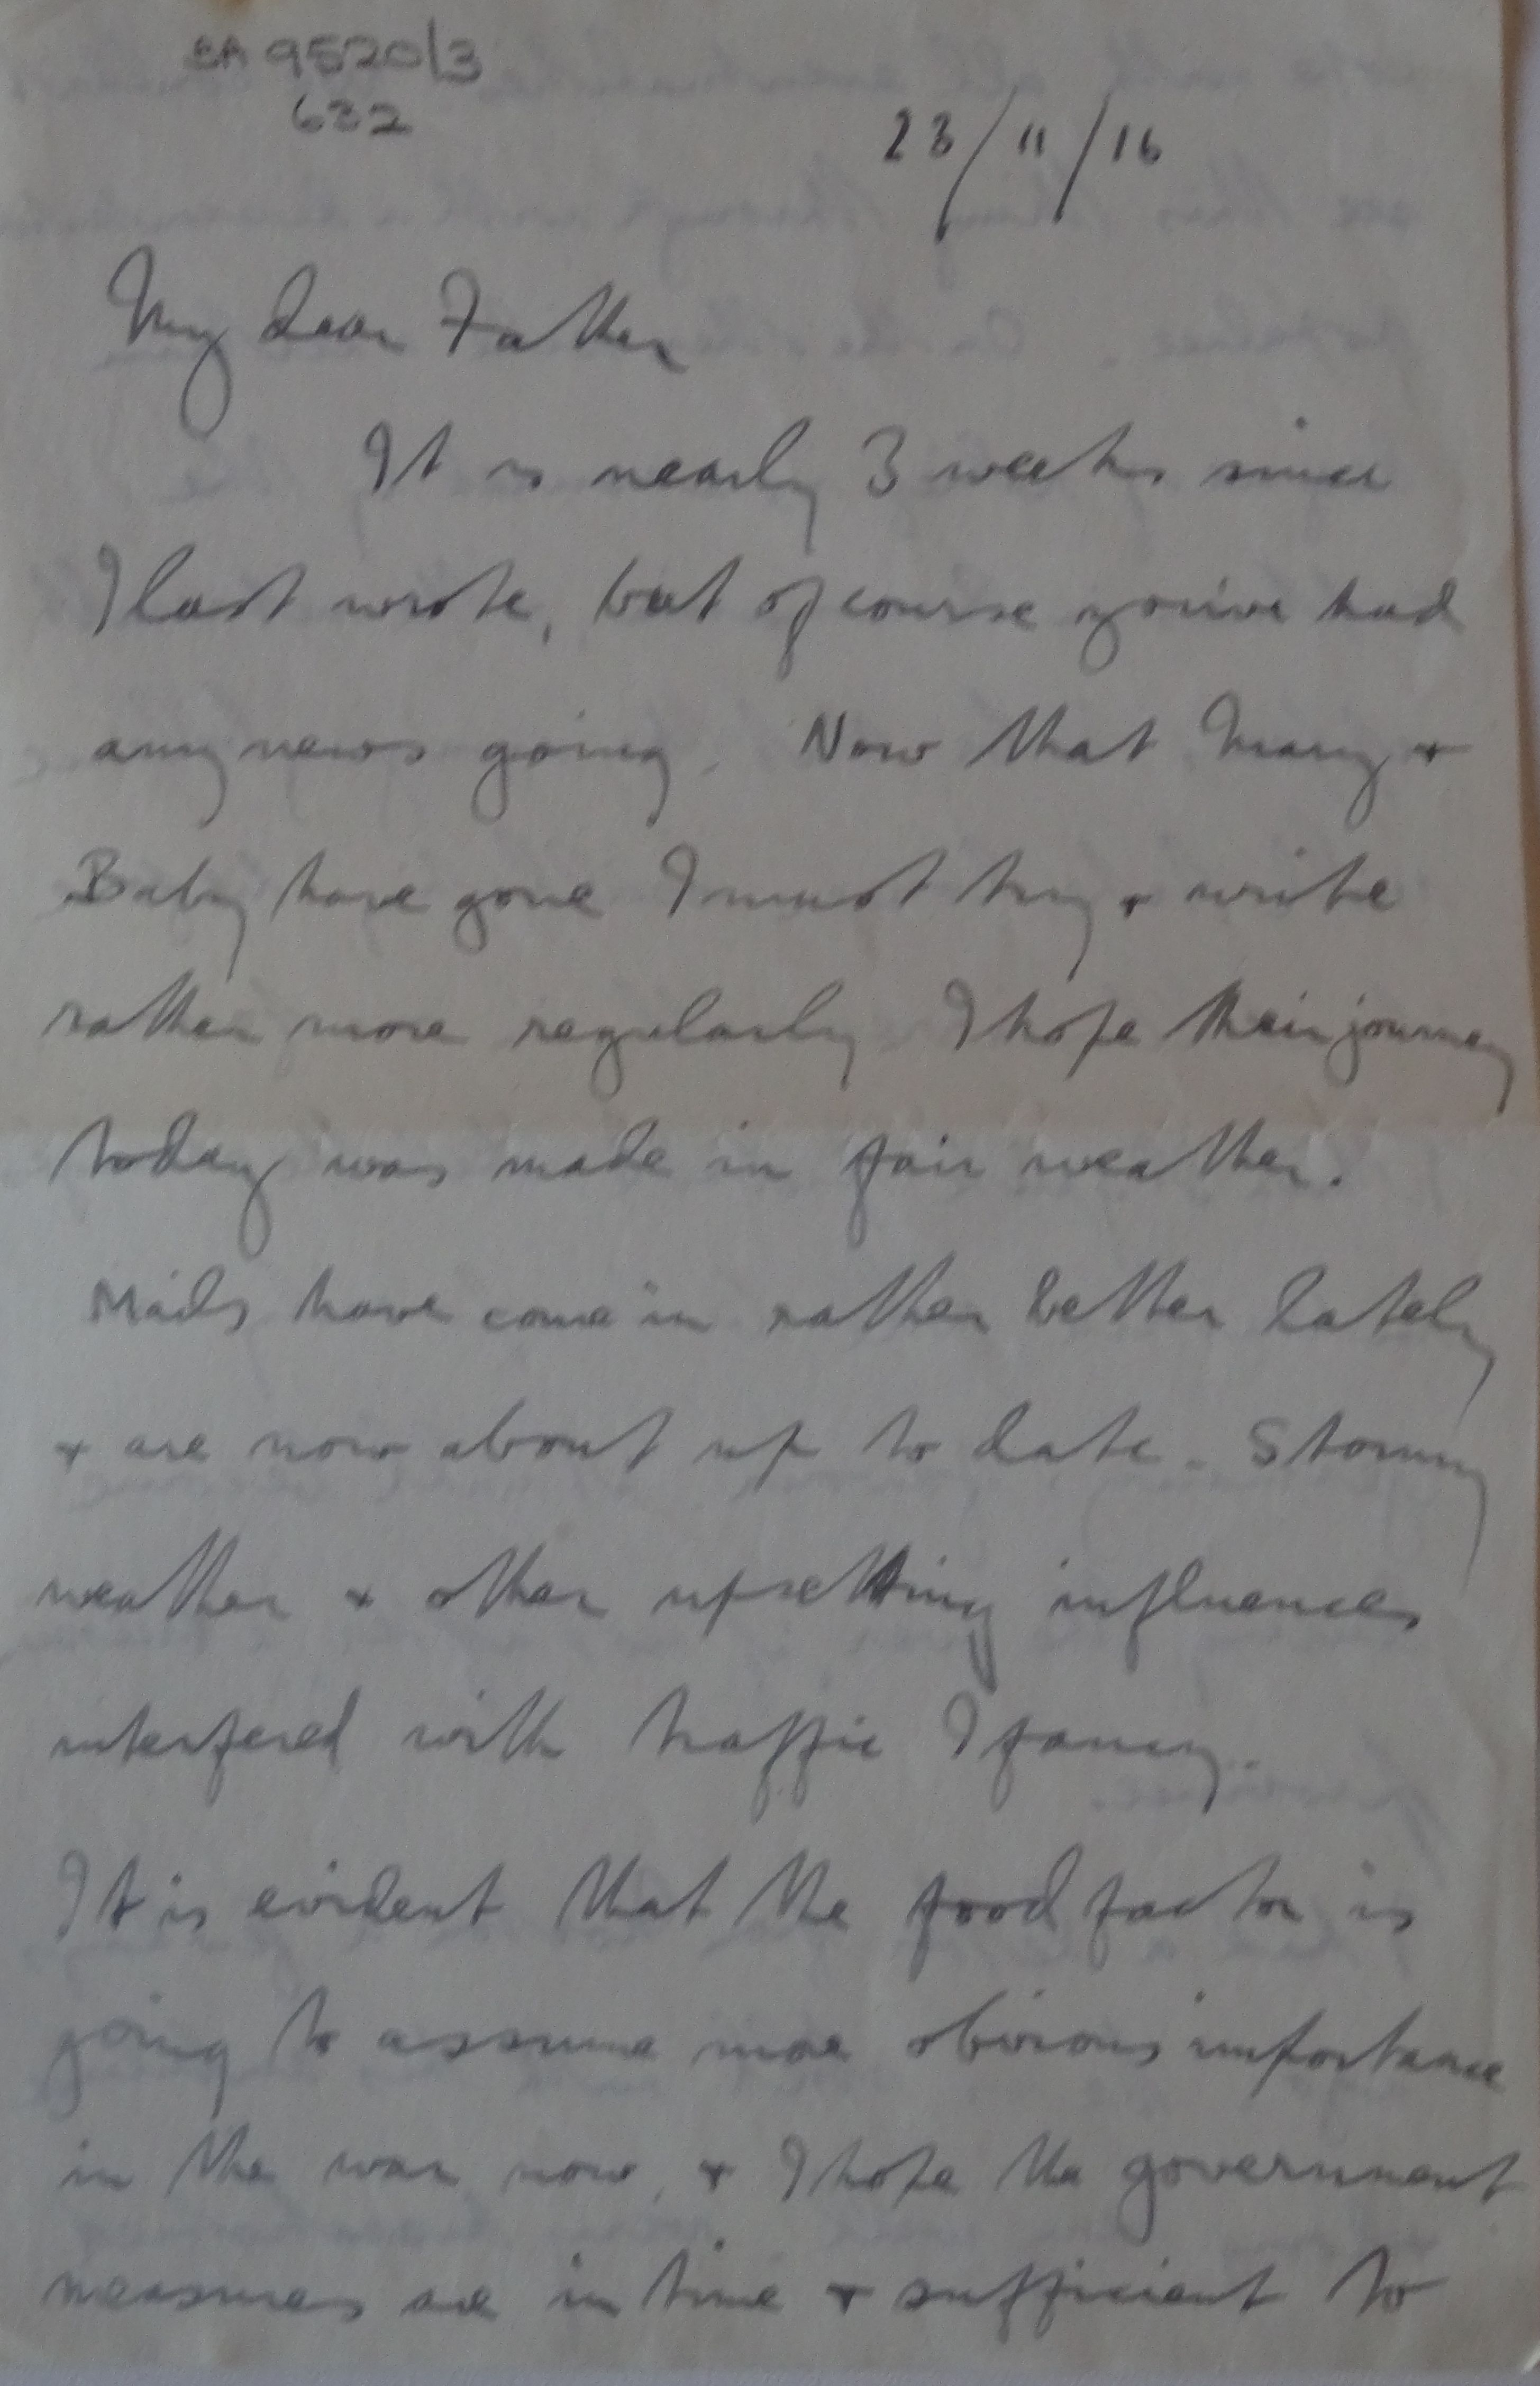 EA 9520/3
632
23/11/16
My dear Father
It is nearly 3 weeks since
I last wrote, but of course you've had
any news going. Now that Mary +
Baby have gone I must try + write
rather more regularly I hope their journey
today was made in fair weather.
Mails have come in rather better lately
+ are now about up to date. Stormy
weather + other upsetting influences
interfered with traffic I fancy.
It is evident that the food factor is
going to assume more obvious importance
in the war now, + I hope the government
measures are in time + sufficient to